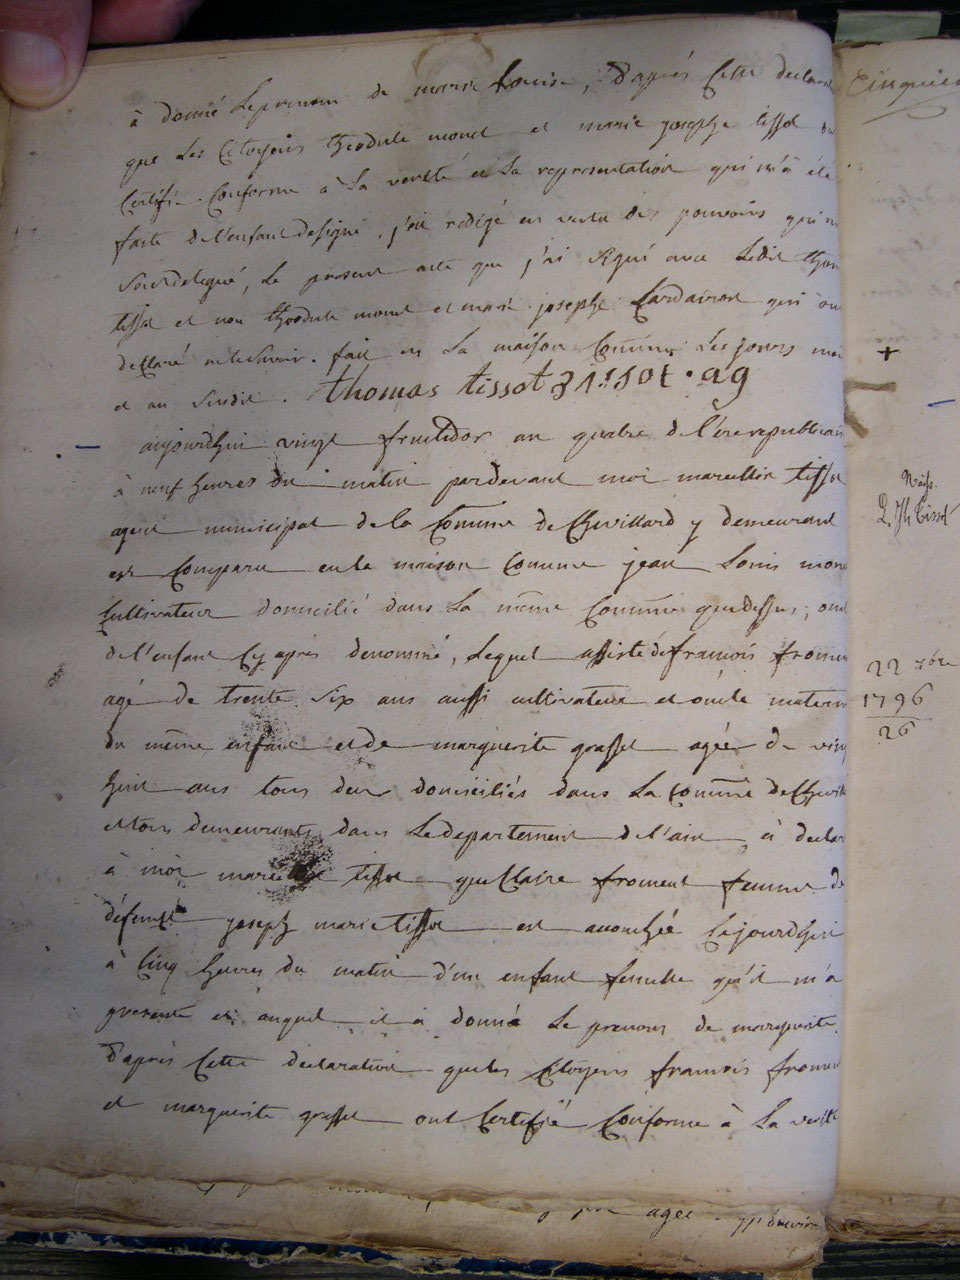 à donné Le prenom de marie Louise, d'aprés Cette declarat
que Les Citoyens theodule monet et marie josephe tissot on
Certifié Conforme à La verité et La representation qui m'a été
faite de l'enfant designé, j'ai redigé en vertu des pouvoirs qui m
Sont delegué, Le present acte que j'ai signé avec Ledit thom
tissot et non theodule monet et marie josephe Cardairon qui on
declaré ne le Savoir. fait en La maison Commune Les jours moi
et an Susdit. thomas tissot tissot. ag
aujourdhui vingt fructidor an quatre de l'ére republicain
à neuf heures du matin pardevant moi marcellin tissot
agent municipal de la Commune de Chevillard y demeurant
est Comparu en la maison Commune jean Louis mon
Cultivateur domicilié dans La même Commune que dessus, onc
de l'enfant Cy aprés denommé, Lequel assisté de francois fromen
agé de trente Six ans aussi cultivateur et oncle matern
du même enfant et de marguerite grasset agée de ving
huit ans tous deux domiciliés dans La Commune de Chevill
et tous demeurants dans Le departement de l'ain, à declar
à moi marcellin tissot que Claire froment femme de
défunt joseph marie tissot est accouchée Cejourdhui
à Cinq heures du matin d'un enfant femelle qu'il m'a
presenté et auquel il à donné Le prenom de marguerite.
d'aprés Cette declaration que les Citoyens francois fromen
et marguerite grasset ont Certifié Conforme à La verité
agée
Cinquiem
+
Naiss.
22 7bre
1796
26